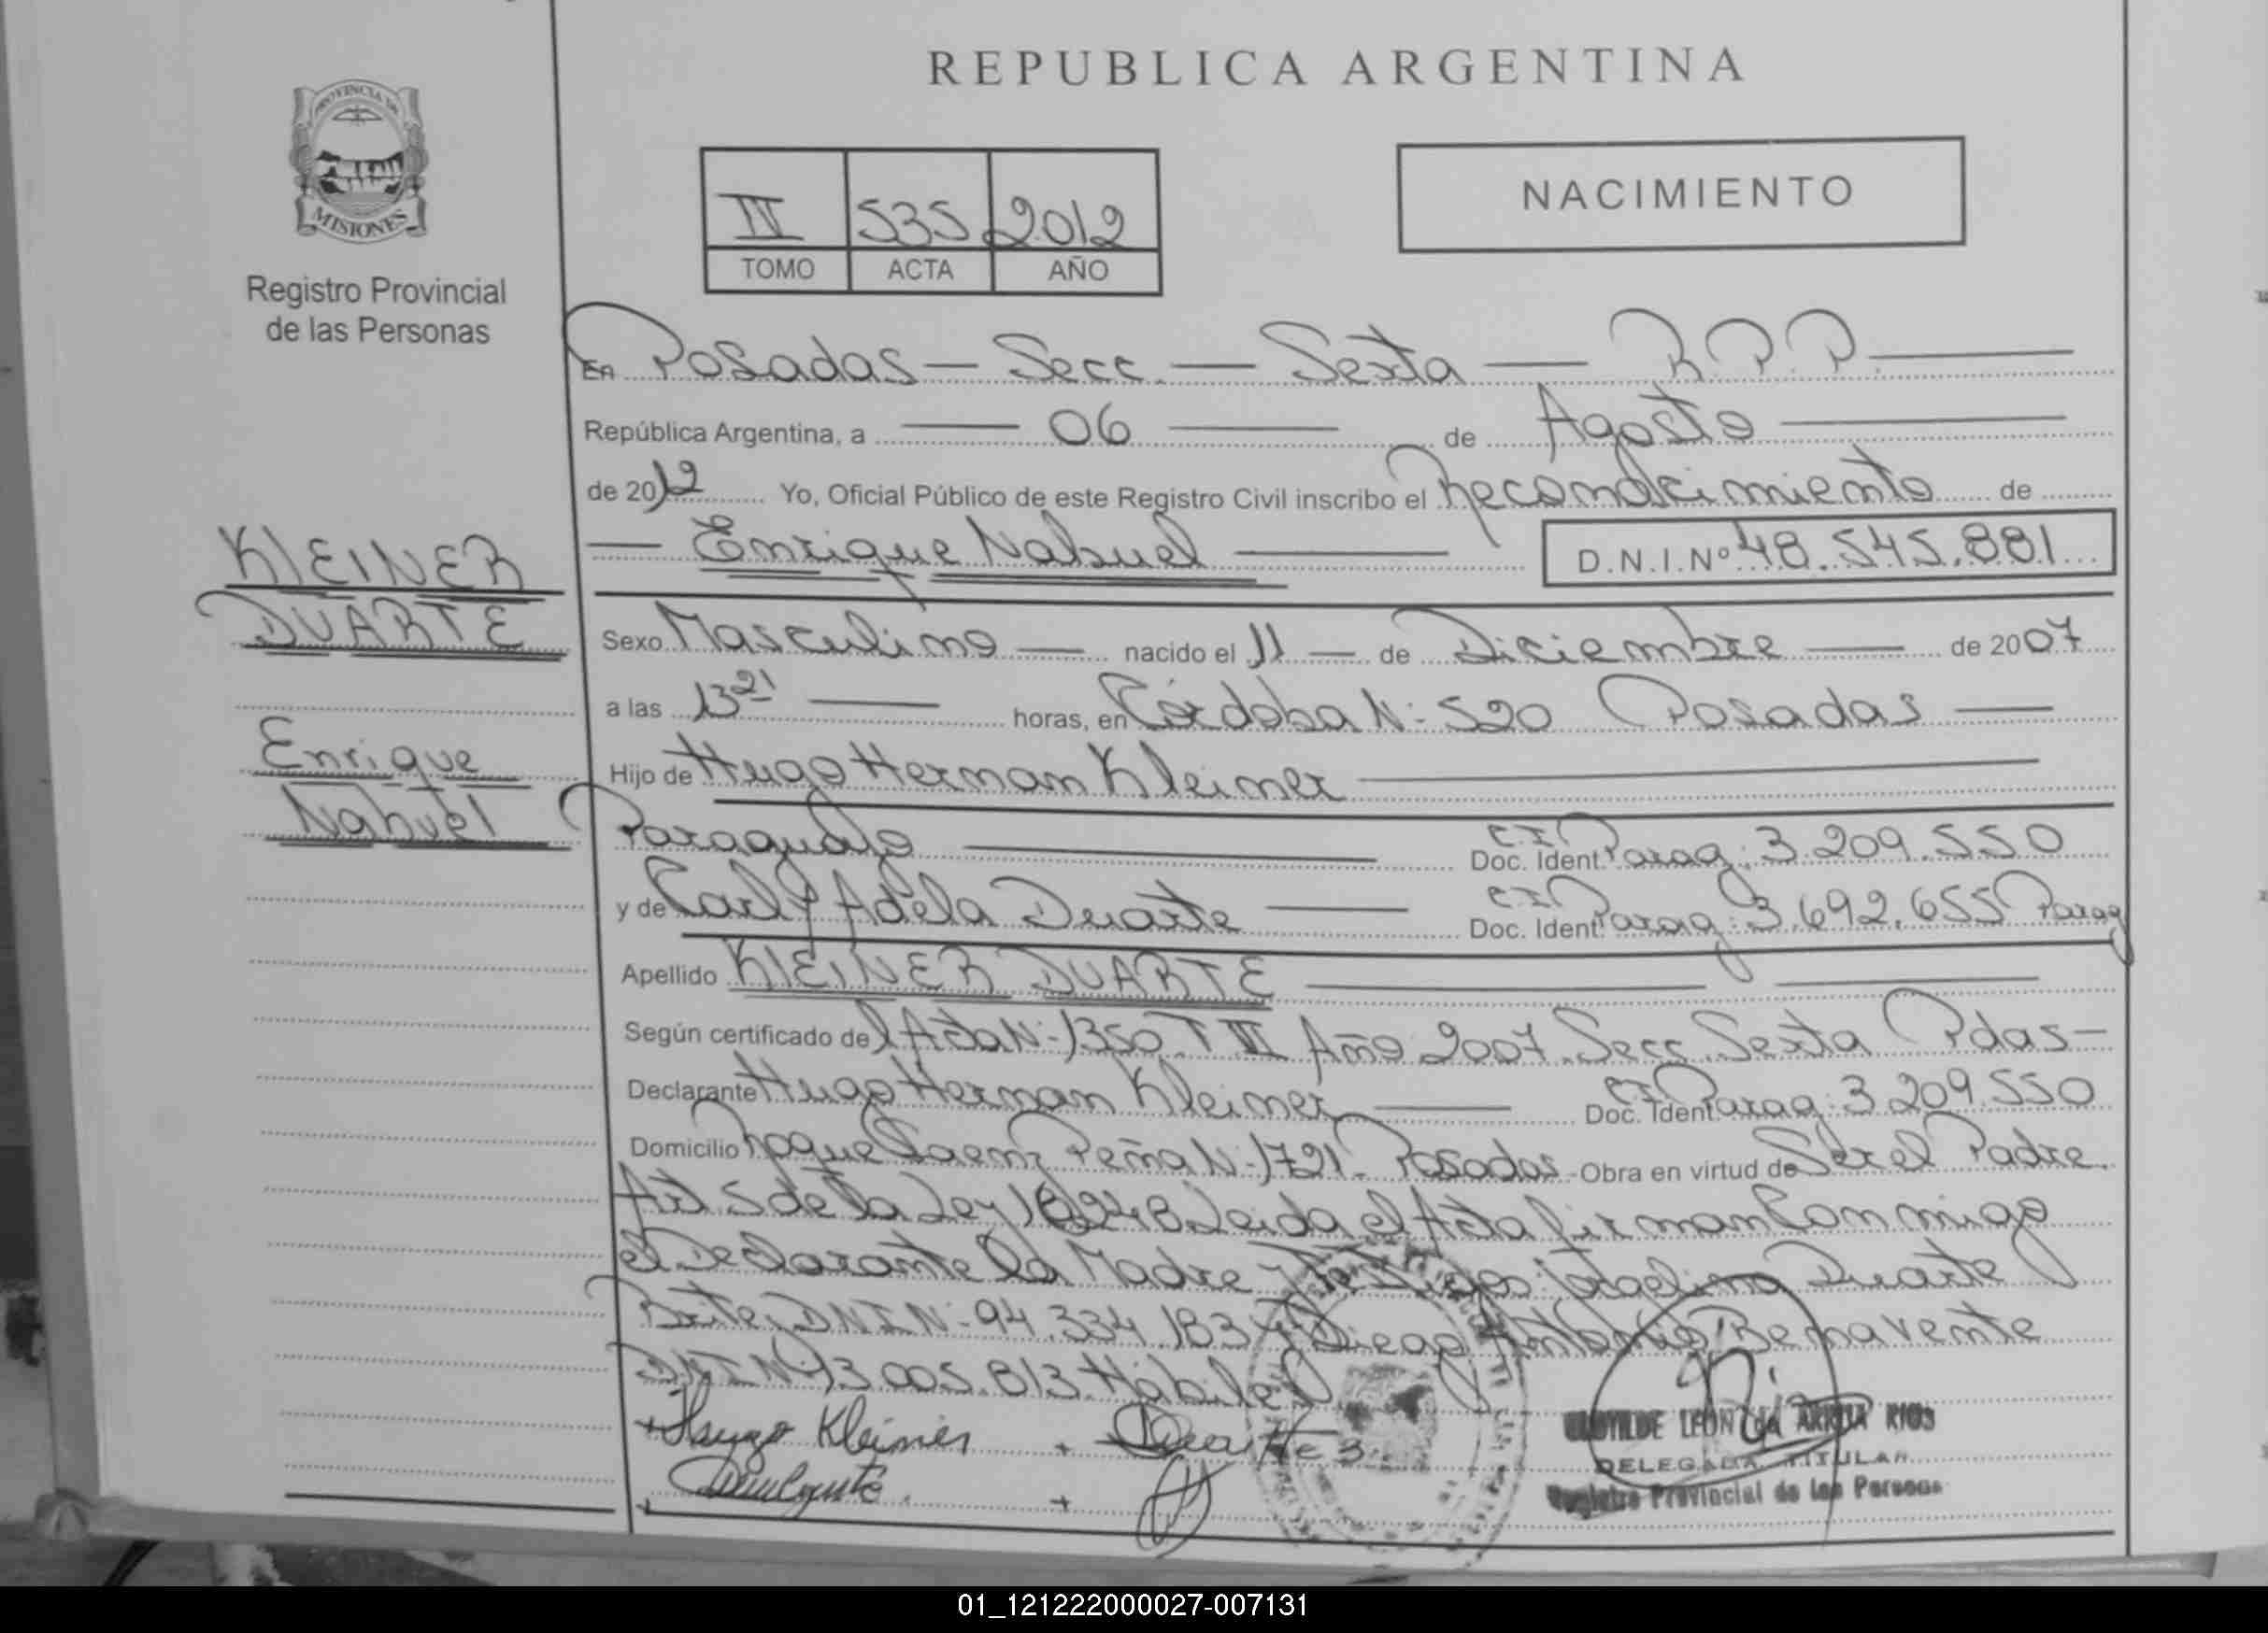 REPUBLICA ARGENTINA
PROVINCIA DE
MISIONES
Registro Provincial
de las Personas
IV 535 2012
TOMO ACTA AÑO
NACIMIENTO
En Posadas — Secc. — Sexta — R.P.P.
República Argentina, a — 06 — de Agosto
de 2012 Yo, Oficial Público de este Registro Civil inscribo el Reconocimiento de
— Enrique Nahuel — D.N.I.Nº 48.545.881
KLEINER
DUARTE
Enrique
Nahuel
Sexo Masculino — nacido el 11 — de Diciembre — de 2007
a las 13 21 — horas, en Córdoba N: 520 Posadas —
Hijo de Hugo Herman Kleiner
Paraguayo — Doc. Ident. C.I. Parag: 3.209.550
y de Adela Duarte — Doc. Ident. C.I. Parag: 3.692.655 Parag
Apellido KLEINER DUARTE
Según certificado del Acta N: 1350 T III Año 2007 Secc Sexta Pdas —
Declarante Hugo Herman Kleiner — Doc. Ident. C.I. Parag: 3.209.550
Domicilio Roque Saenz Peña N: 1721 - Posadas - Obra en virtud de Ser el Padre.
Art 5 de la Ley 18248 Leida el Acta firman Conmigo
el Declarante la Madre y Testigos: Duarte
Brite, DNI N: 94.334.183 y Diego Antonio Benavente
DNI N 93.005.813 Hábiles
Hugo Kleiner + Duarte
LEON de ARRUA RIOS
DELEGADA TITULAR
Registro Provincial de las Personas
01_121222000027-007131